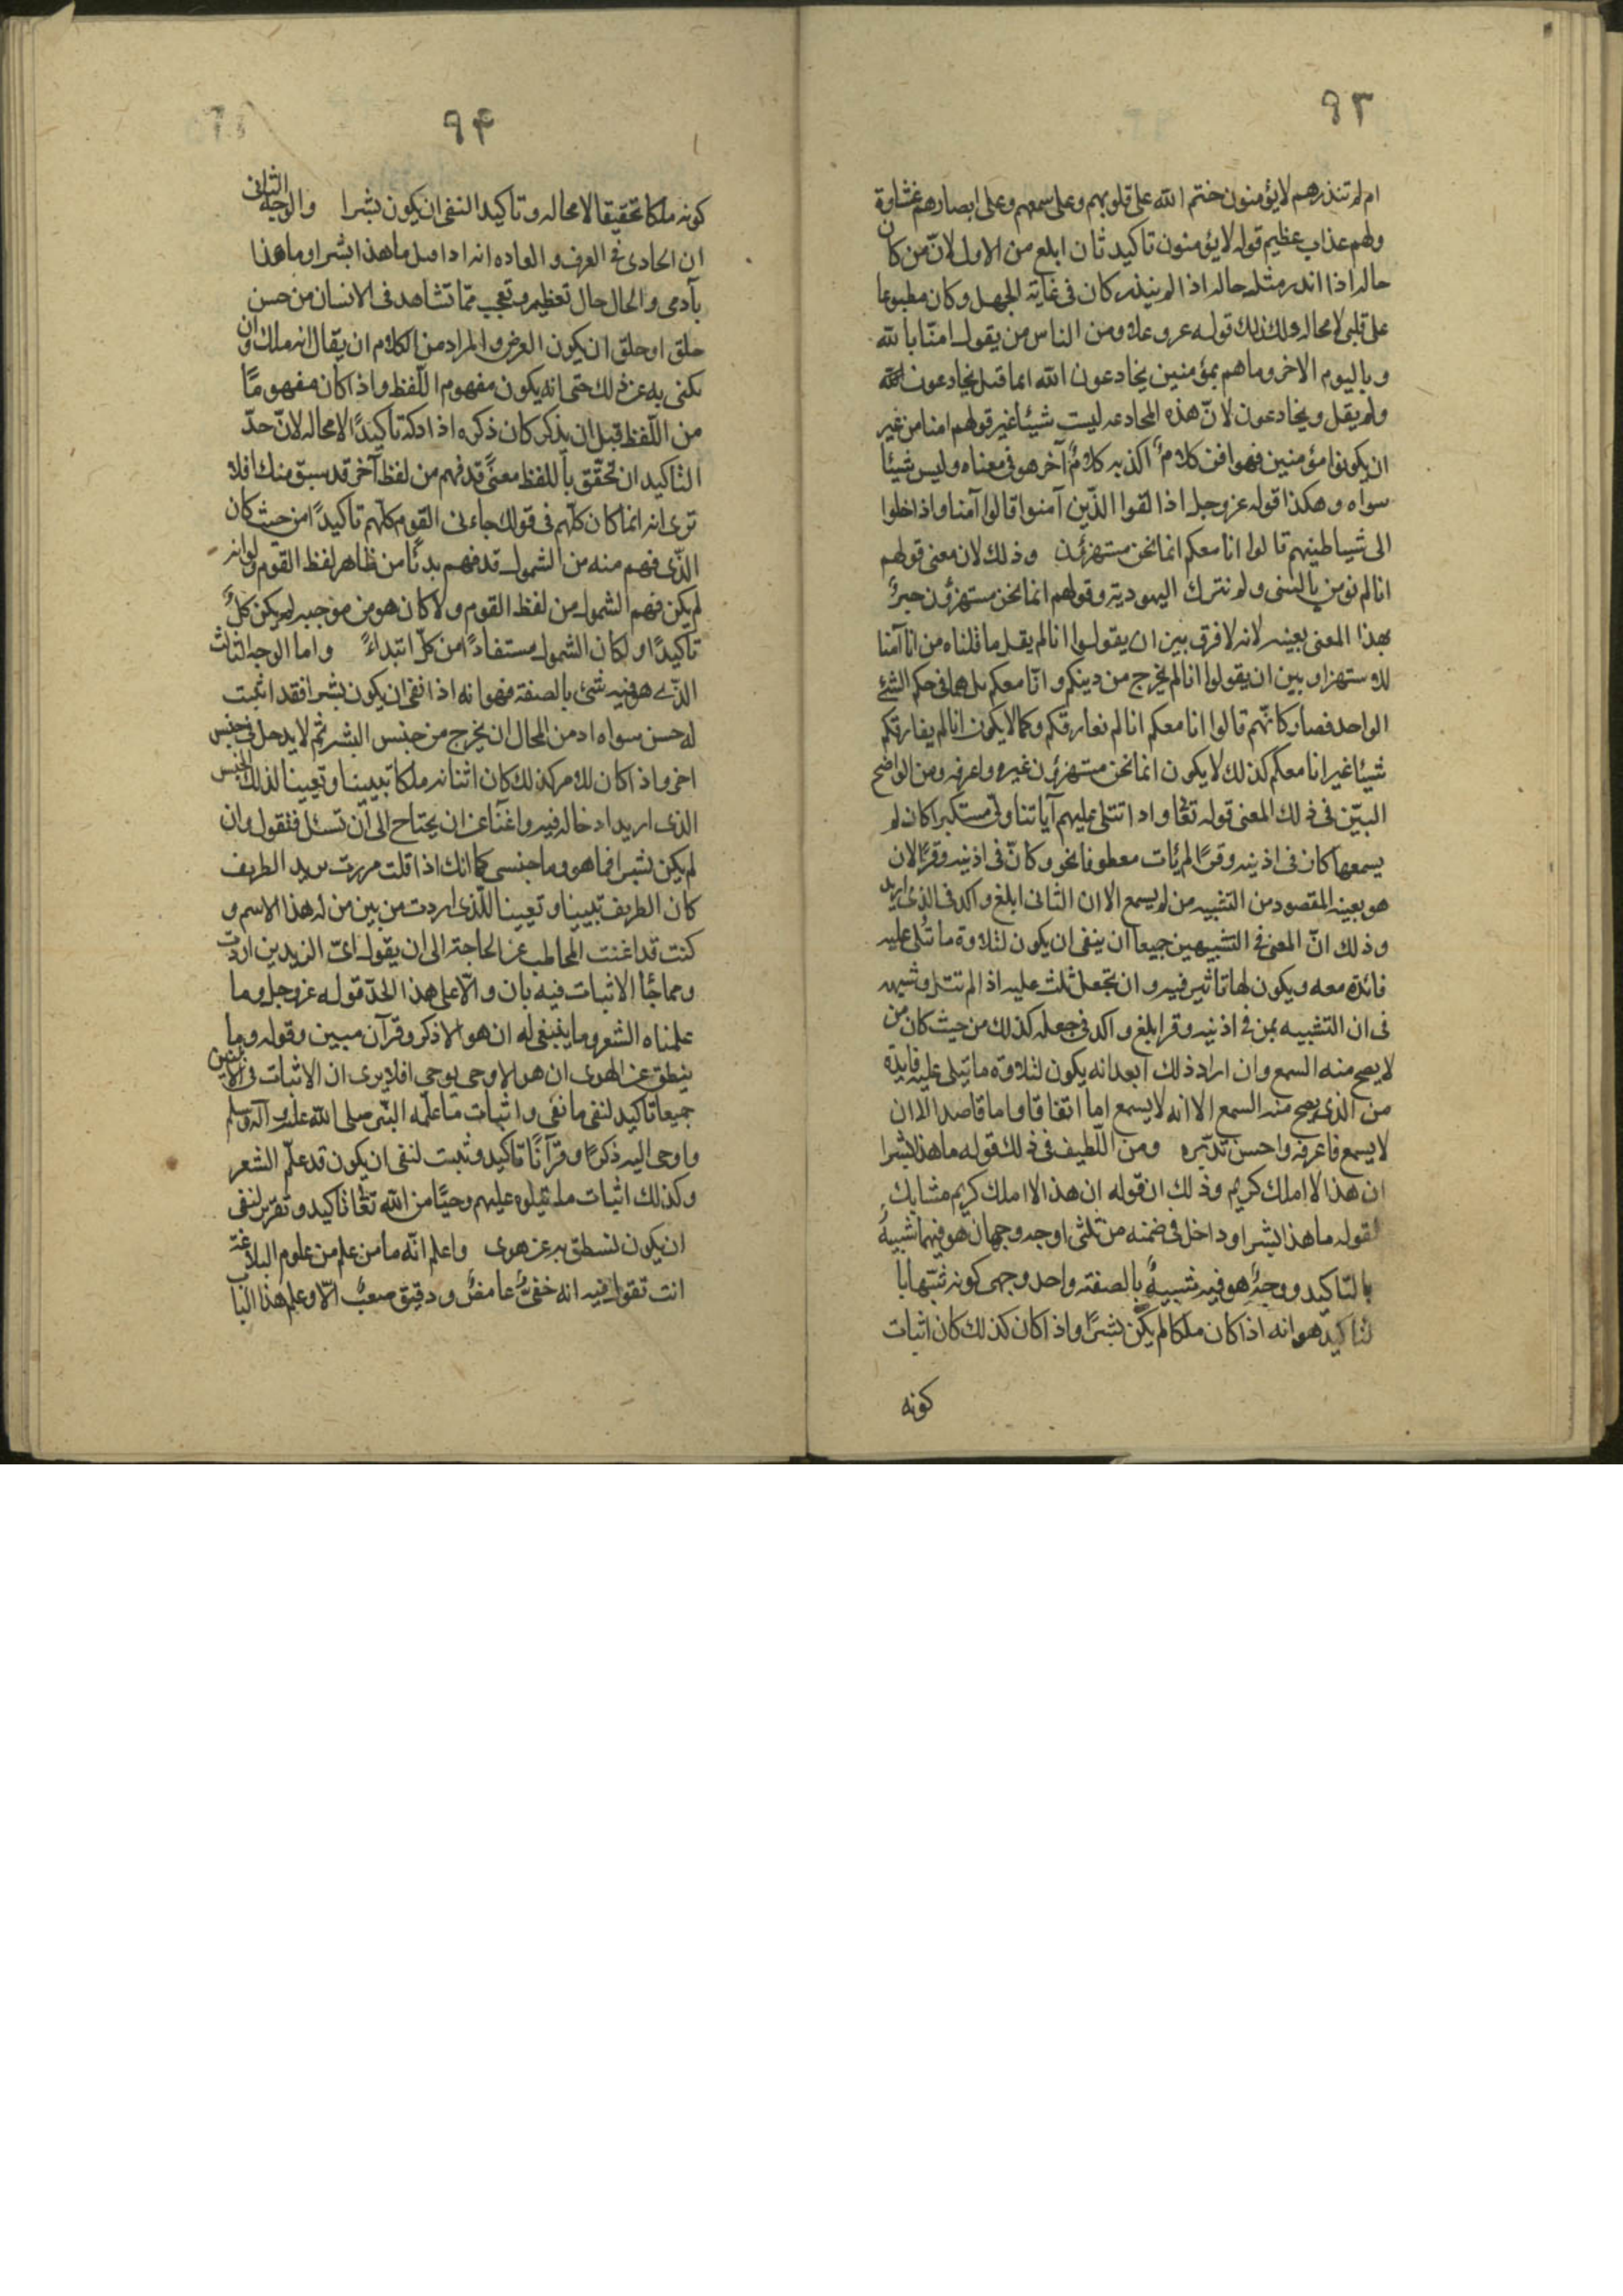 ٩٣
ام لم تنذرهم لا يؤمنون ختم الله على قلوبهم وعلى سمعهم وعلى ابصارهم غشاوة
ولهم عذاب عظيم قوله لا يؤمنون تاكيد ثان ابلع من الاول لانّ من كان
حاله اذا اندر مثله حاله اذا لم ينذر كان فى غاية الجهل وكان مطبوعا
على قلبى لا محاله وكذلك قوله عز وعلا ومن الناس من يقول امنّا بالله
وباليوم الاخر وما هم بمؤمنين يخادعون الله انما قيل يخادعون الله
ولم يقل ويخادعون لانّ هذه المخادعه ليست شيئا غير قولهم امنا من غير
ان يكونوا مؤمنين فهو اذن كلامٌ اكذ به كلامٌ آخر هو فى معناه وليس شيئا
سواه وهكذا قوله عز وجل اذا لقوا الذّين آمنوا قالوا آمنا واذا خلوا
الى شياطينهم قالوا انا معكم انما نحن مستهزؤن وذلك لان معنى قولهم
انا لم نؤمن بالنبى ولم نترك اليهوديّة وقولهم انما نحن مستهزؤن خبرٌ
بهذا المعنى بعينه لانه لا فرق بين ان يقولوا انا لم يقل ما قلناه من انا آمنا
للاستهزاء وبين ان يقولوا انا لم نخرج من دينكم وانّا معكم بل هما فى حكم الشئ
الواحد فصار كانّهم قالوا انا معكم انا لم نعارقكم وكما لا يكون انا لم يفارقكم
شيئا غير انا معكم كذلك لا يكون انما نحن مستهزؤن غيره واعرفه ومن الواضح
البيّن فى ذلك المعنى قوله تعا واذا تتلى عليهم آياتنا ولّى مستكبرا كان لم
يسمعها كان فى اذنيه وقرًا لم يأت معطوفا نحو وكانّ فى اذنيه وقرًا لان
هو بعينه المقصود من التشبيه من لم يسمع الا ان الثانى ابلغ واكد فى الذى اريد
وذلك انّ المعنى فى التشبيهين جيعا ان ينفى ان يكون لتلاوة ما تُتلى عليه
فائدة معه ويكون لها تاثير فيه وان تجعل ثلث عليه اذا لم تتل وشبهه
فى ان التشبيه بمن فى اذنيه وقرا بلغ واكد فى جعله كذلك من حيث كان من
لا يصح منه السمع وان اراد ذلك ابعد انه يكون لتلاوة ما يتلى عليه فايدة
من الذى يصح منه السمع الا انه لا يسمع اما اتفاقا واما قاصدا الا ان
لا يسمع فاعرفه واحسن تدبّره ومن اللّطيف فى ذلك قوله ما هذا بشرا
ان هذا الا ملك كريم وذلك ان قوله ان هذا الا ملك كريم مشابك
لقوله ما هذا بشرا وداخل فى ضمنه من ثلثى اوجه وجهان هو فيهما شبيهٌ
بالتّاكيد ووجهٌ هو فيه شبيهٌ بالصفة واحد وجهى كونه شبّها با
لتاكيد هو انه اذا كان ملكا لم يكن بشرًا واذا كان كذلك كان اثبات
كونه
٩٤
كونه ملكا تحقيقا لا محاله وتاكيدا لنفى ان يكون بشرا والوجه الثانى
ان الجارى فى العرف والعاده انه اذا قيل ما هذا بشرا وما هذا
بآدمى والحال حال تعظيم وتعجب ممّا تشاهد فى الانسان من حسن
خلق او خلق ان يكون الغرض والمراد من الكلام ان يقال انه ملك وان
يكنى به عن ذلك حتى انه يكون مفهوم اللّفظ واذا كان مفهومًا
من اللّفظ قبل ان يذكر كان ذكره اذا ذكر تاكيدًا لا محاله لانّ حدّ
التاكيد ان تحقّق باللفظ معنًى قد فهم من لفظ آخر قد سبق منك افلا
ترى انه انما كان كلّهم فى قولك جاءنى القوم كلّهم تاكيدًا من حيث كان
الذّى فهم منه من الشمول قد فهم بدئًا من ظاهر لفظ القوم ولو انه
لم يكن فهم الشمول من لفظ القوم ولا كان هو من موجبه لم يكن كلٌّ
تاكيدًا ولكان الشمول مستفادًا من كلّ ابتداءً واما الوجه الثالث
الذّى هو فيه شئ بالصفة فهو انه اذا نفى ان يكون بشرا فقد اثبت
له حسن سواه اذ من المحال ان يخرج من جنس البشر ثم لا يدخل فى جنس
اخر واذا كان للامر كذلك كان اثباته ملكا تبيينا وتعيينا لذلك الجنس
الذى اريد ادخاله فيه واغنآء عن ان يحتاج الى ان تسئل فتقول وان
لم يكن بشرا فما هو وما جنسى كما انك اذا قلت مررت بزيد الظريف
كان الظريف تبيينا وتعيينا للّذى اردت من بين من له هذا الاسم و
كنت قد اغنت المخاطب عن الحاجة الى ان يقول اىّ الزيدين اردت
ومما جٓا الاثبات فيه بان والّا على هذا الحدّ قوله عز وجل وما
علمناه الشعر وما ينبغى له ان هو الا ذكر وقرآن مبين وقوله وما
ينطق عن الهوى ان هو الا وحى يوحى افلا يرى ان الاثبات فى الآيتين
جميعا تاكيد لنفى ما نفى واثبات ما علّمه النبّى صلى الله عليه وآله وسلم
واوحى اليه ذكرًا وقرآنًا تاكيد وثبت لنفى ان يكون قد علّم الشعر
وكذلك اثبات ما يتلوه عليهم وحيًا من الله تعا تاكيد وتقرير لنفى
ان يكون لنسطق به عن هوى واعلم انّه ما من علم من علوم البلاغة
انت تقول فيه انه خفىٌّ غامضٌ ودقيق صعبٌ الّا وعلم هذا البا